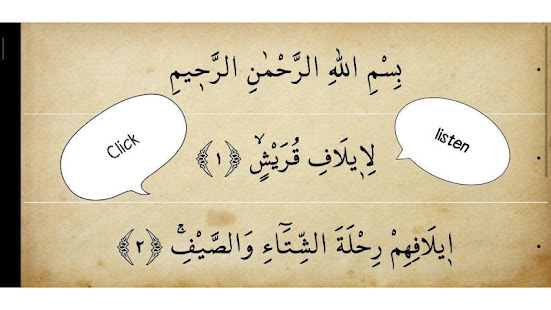 بِسْمِ اللهِ الرَّحْمٰنِ الرَّحٖيمِ
Click
لِاٖيلَافِ قُرَيْشٍۙ ﴿١﴾
listen
اٖيلَافِهِمْ رِحْلَةَ الشِّتَٓاءِ وَالصَّيْفِۚ ﴿٢﴾